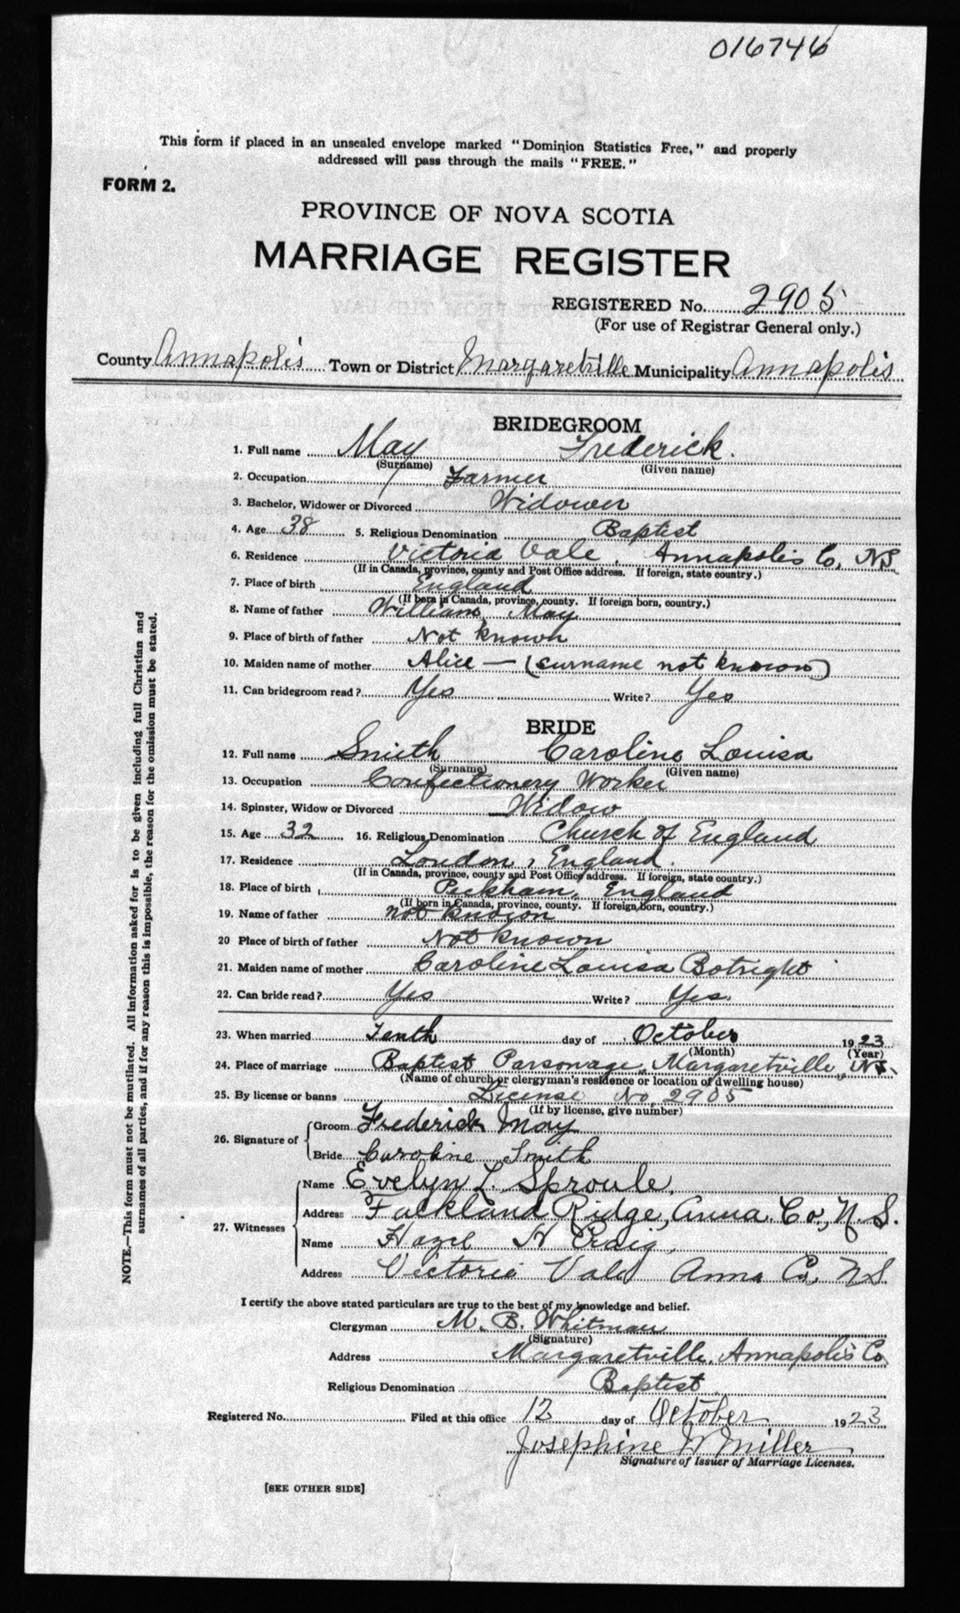 016746
This form if placed in an unsealed envelope marked "Dominion Statistics Free," and properly
addressed will pass through the mails "FREE."
FORM 2.
PROVINCE OF NOVA SCOTIA
MARRIAGE REGISTER
REGISTERED No. 2905
(For use of Registrar General only.)
County Annapolis Town or District Margaretville Municipality Annapolis
BRIDEGROOM
1. Full name May Frederick.
(Surname) (Given name)
2. Occupation Farmer
3. Bachelor, Widower or Divorced Widower
4. Age 38 5. Religious Denomination Baptist
6. Residence Victoria Vale, Annapolis Co, NS
(If in Canada, province, county and Post Office address. If foreign, state country.)
7. Place of birth England
(If born in Canada, province, county. If foreign born, country.)
8. Name of father William May
9. Place of birth of father Not known
10. Maiden name of mother Alice — (surname not known)
11. Can bridegroom read? Yes Write? Yes
BRIDE
12. Full name Smith Caroline Louisa
(Surname) (Given name)
13. Occupation Confectionery Worker
14. Spinster, Widow or Divorced Widow
15. Age 32 16. Religious Denomination Church of England
17. Residence London, England.
(If in Canada, province, county and Post Office address. If foreign, state country.)
18. Place of birth Peckham, England
(If born in Canada, province, county. If foreign born, country.)
19. Name of father not known
20 Place of birth of father Not known
21. Maiden name of mother Caroline Louisa Botright
22. Can bride read? Yes Write? Yes.
23. When married Tenth day of October 1923
(Month) (Year)
24. Place of marriage Baptist Parsonage, Margaretville, N.S.
(Name of church or clergyman's residence or location of dwelling house)
25. By license or banns License No. 2905
(If by license, give number)
26. Signature of Groom Frederick May
Bride Caroline Smith
27. Witnesses Name Evelyn L. Sproule,
Address Falkland Ridge, Anna. Co., N.S.
Name Hazel H Craig,
Address Victoria Vale Anna Co, N.S.
I certify the above stated particulars are true to the best of my knowledge and belief.
Clergyman M. B. Whitman
(Signature)
Address Margaretville, Annapolis Co
Religious Denomination Baptist
Registered No. Filed at this office 12 day of October 1923
Josephine W Miller
Signature of Issuer of Marriage Licenses.
[SEE OTHER SIDE]
NOTE.—This form must not be mutilated. All information asked for is to be given including full Christian and
surnames of all parties, and if for any reason this is impossible, the reason for the omission must be stated.